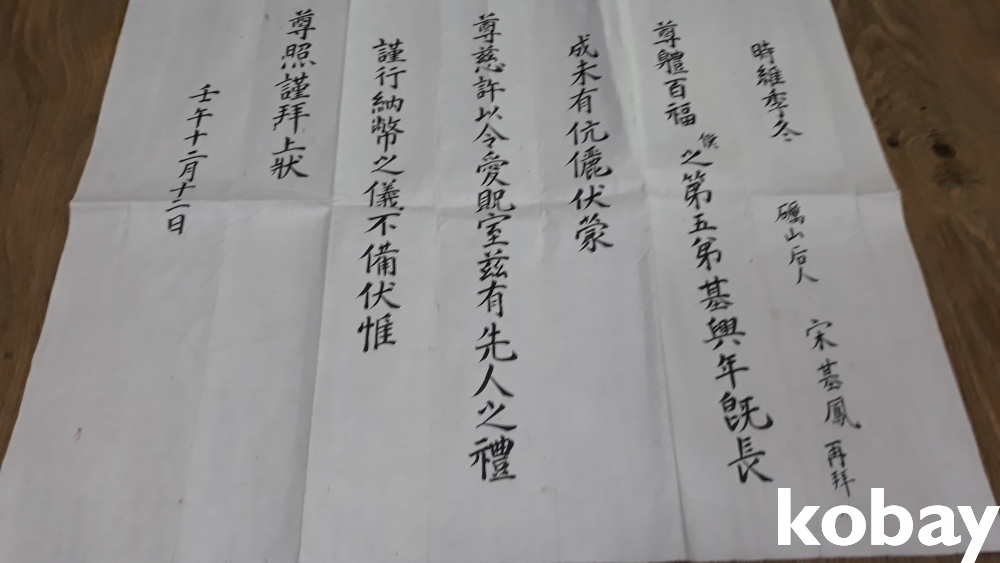 礪山后人 宋基鳳 再拜
時維季冬
尊軆百福僕之第五弟基興年旣長
成未有伉儷伏蒙
尊慈許以令愛貺室茲有先人之禮
謹行納幣之儀不備伏惟
尊照謹拜上狀
壬午十二月十二日
kobay